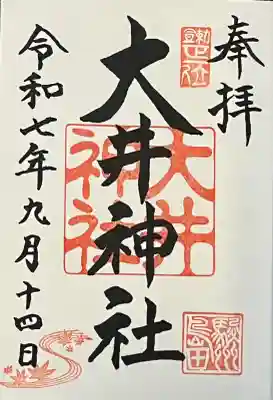 奉拝
駿州
島田
大井神社
大井
神社
令和七年九月十四日